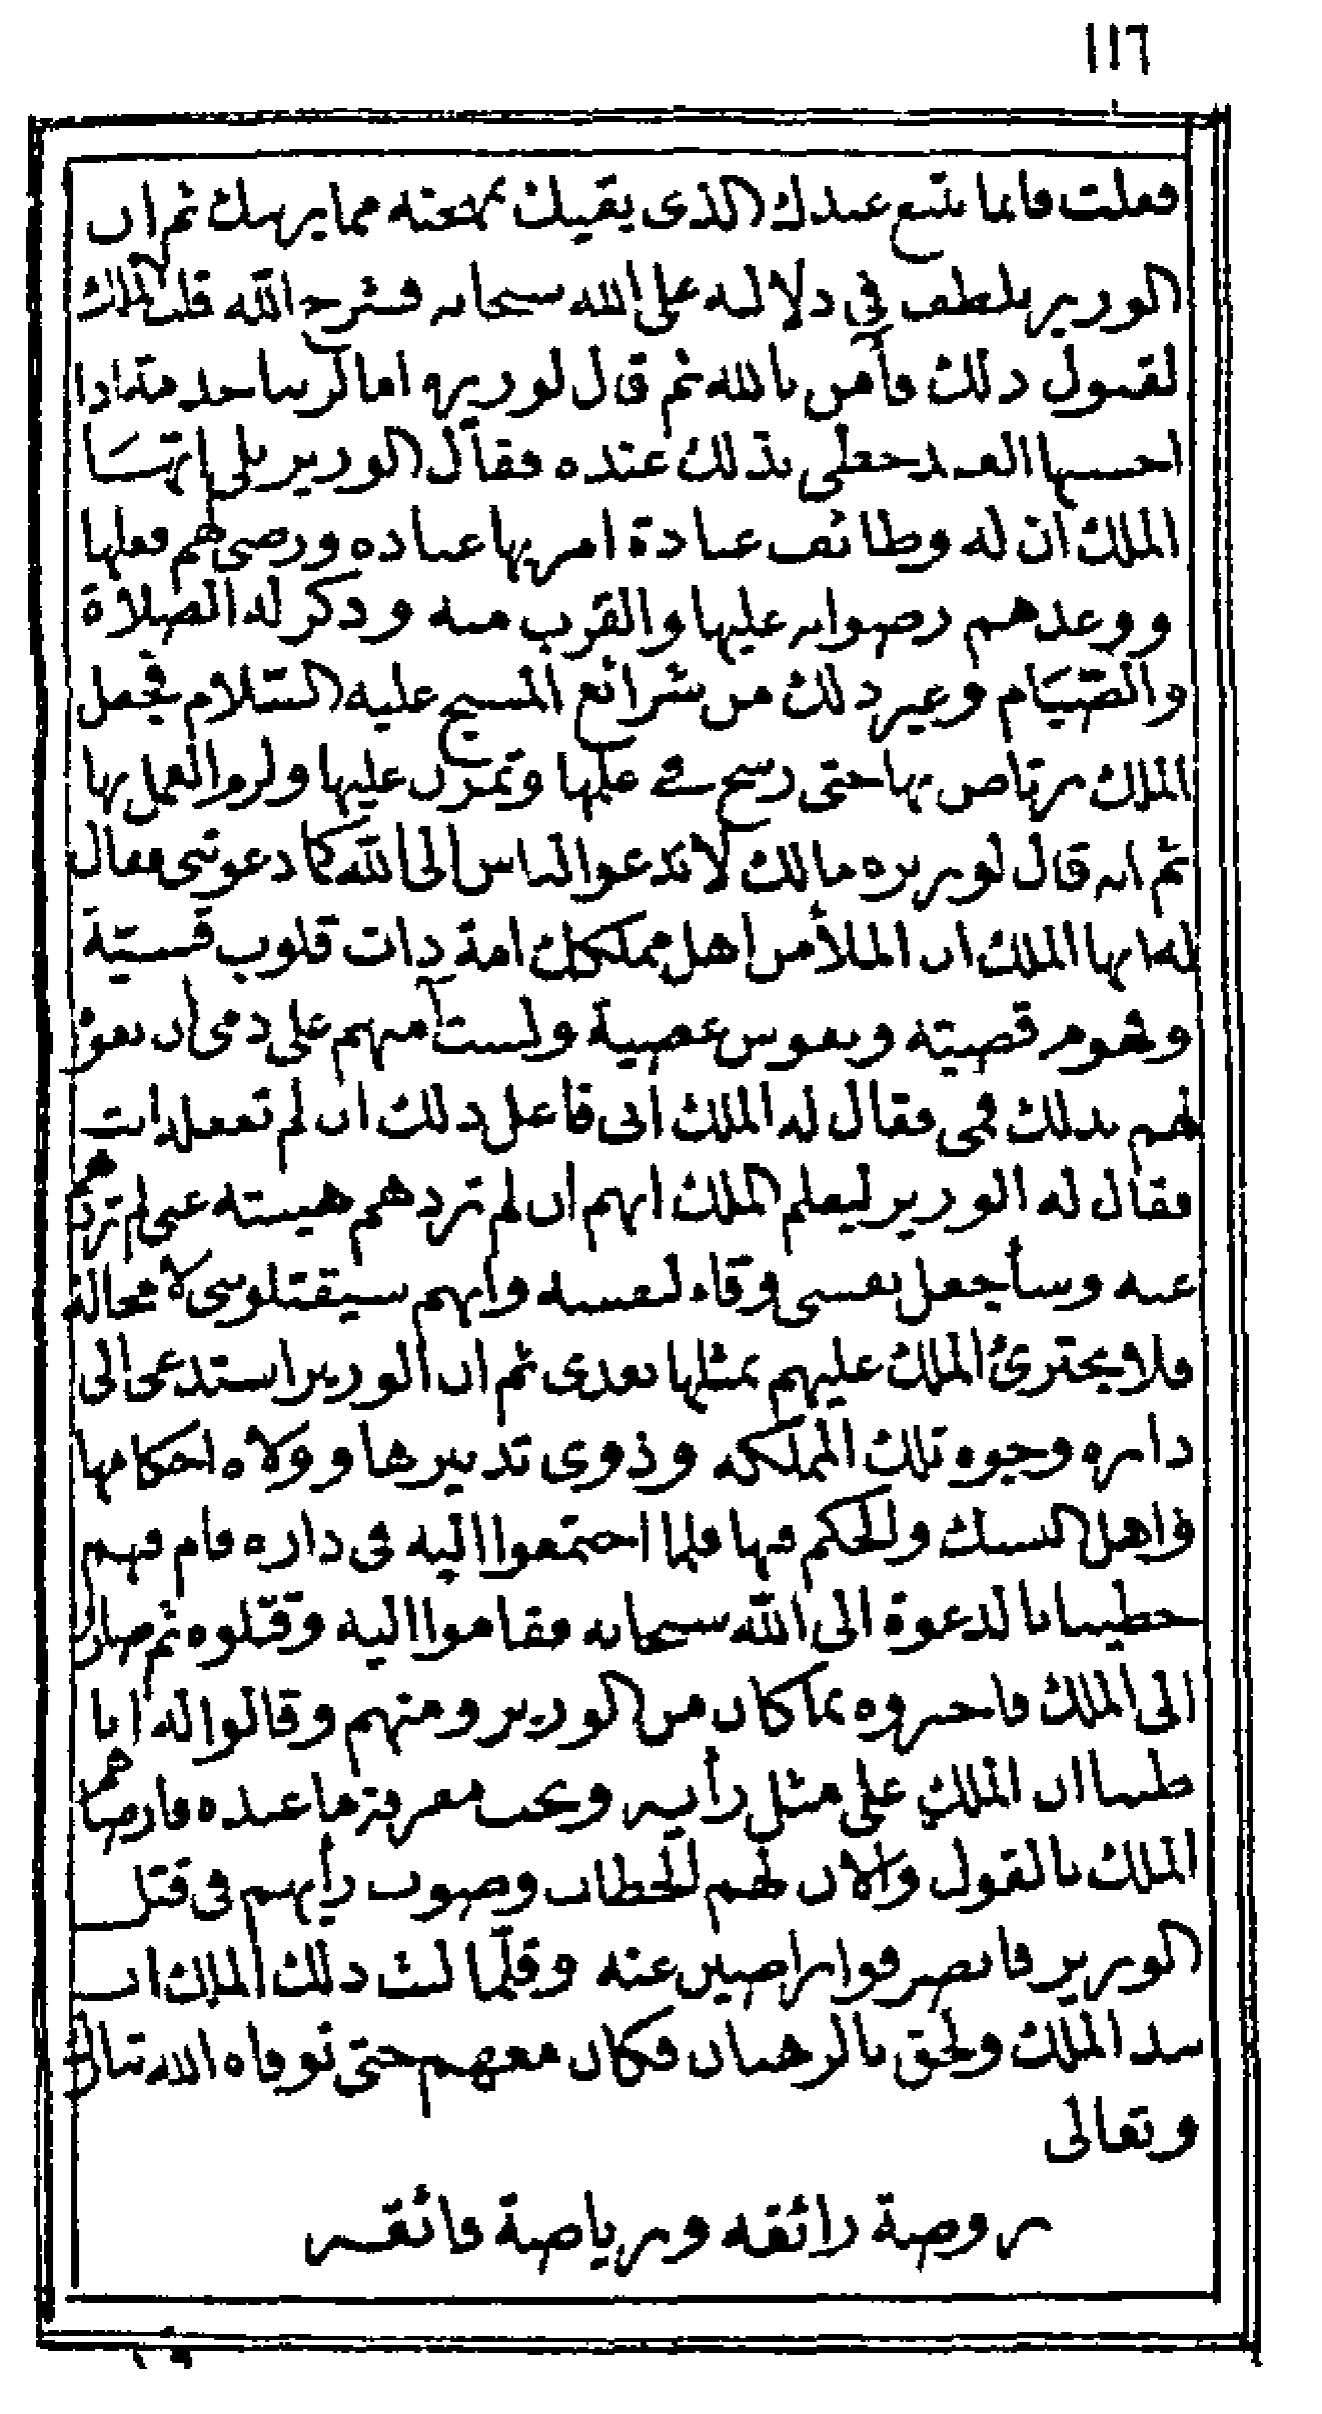 ١١٦
فعلت فانما يتبع عبدك الذى يقيك بمهجته مما يريبك ثم ان
الوزير تلطف فى دلالته على الله سبحانه فشرح الله قلب الملك
لقبول ذلك فآمن بالله ثم قال لوزيره اما لربنا خدمة اذا
احسنها العبد حظى بذلك عنده فقال الوزير بلى ايها
الملك ان له وظائف عبادة امر بها عباده ورضى لهم فعلها
ووعدهم رضوانه عليها والقرب منه وذكر له الصلاة
والصّيَام وغير ذلك من شرائع المسيح عليه السّلام فجعل
الملك يرتاض بها حتى رسخ فى علمها وتمرن عليها ولزم العمل بها
ثم انه قال لوزيره مالك لا تدعو الناس الى الله كما دعوتنى فقال
له ايها الملك ان الملأ من اهل مملكتك امة ذات قلوب قسيّة
وفهوم قصيته ونفوس عصية ولست آمنهم على دمى ان نفوذ
لهم بذلك فمى فقال له الملك انى فاعل ذلك ان لم تفعله انت
فقال له الوزير ليعلم الملك انهم ان لم تردهم هيبته عنى لم تردهم
عنه وسأجعل نفسى وقاء لنفسه وانهم سيقتلونى لا محالة
فلا يجترئ الملك عليهم بمثلها بعدى ثم ان الوزير استدعى الى
داره وجوه تلك المملكه وذوى تدبيرها وولاه احكامها
واهل النسك والحكم فيها فلما اجتمعوا اليه فى داره قام فيهم
خطيبا بالدعوة الى الله سبحانه فقاموا اليه وقتلوه ثم صاروا
الى الملك فاخبروه بما كان من الوزير ومنهم وقالوا له انا
ظننا ان الملك على مثل رأيه ونحب معرفة ما عنده فارضاهم
الملك بالقول والان لهم الخطاب وصوب رأيهم فى قتل
الوزير فانصرفوا راضين عنه وقلّما لبث ذلك الملك ان
نبذ الملك ولحق بالرهبان فكان معهم حتى توفاه الله تبارك
وتعالى
روضة رائقه ورياضة فائقه